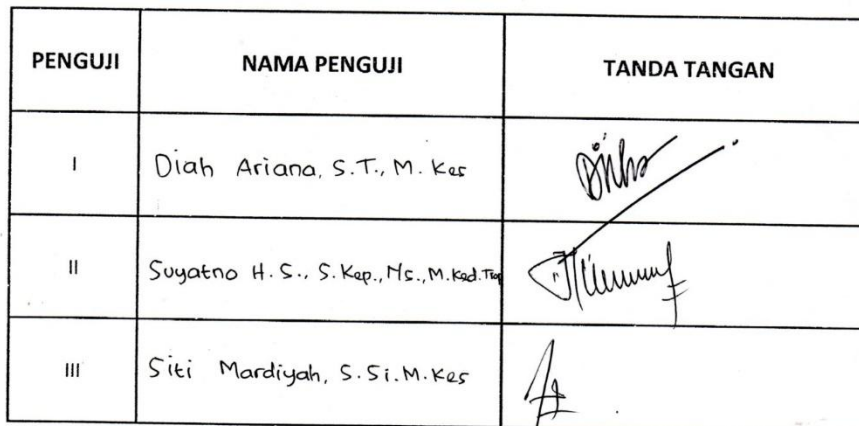 PENGUJI NAMA PENGUJI TANDA TANGAN
I Diah Ariana, S.T., M. Kes
II Suyatno H. S., S. Kep., Ns., M. Ked. Trop
III Siti Mardiyah, S. Si. M. Kes